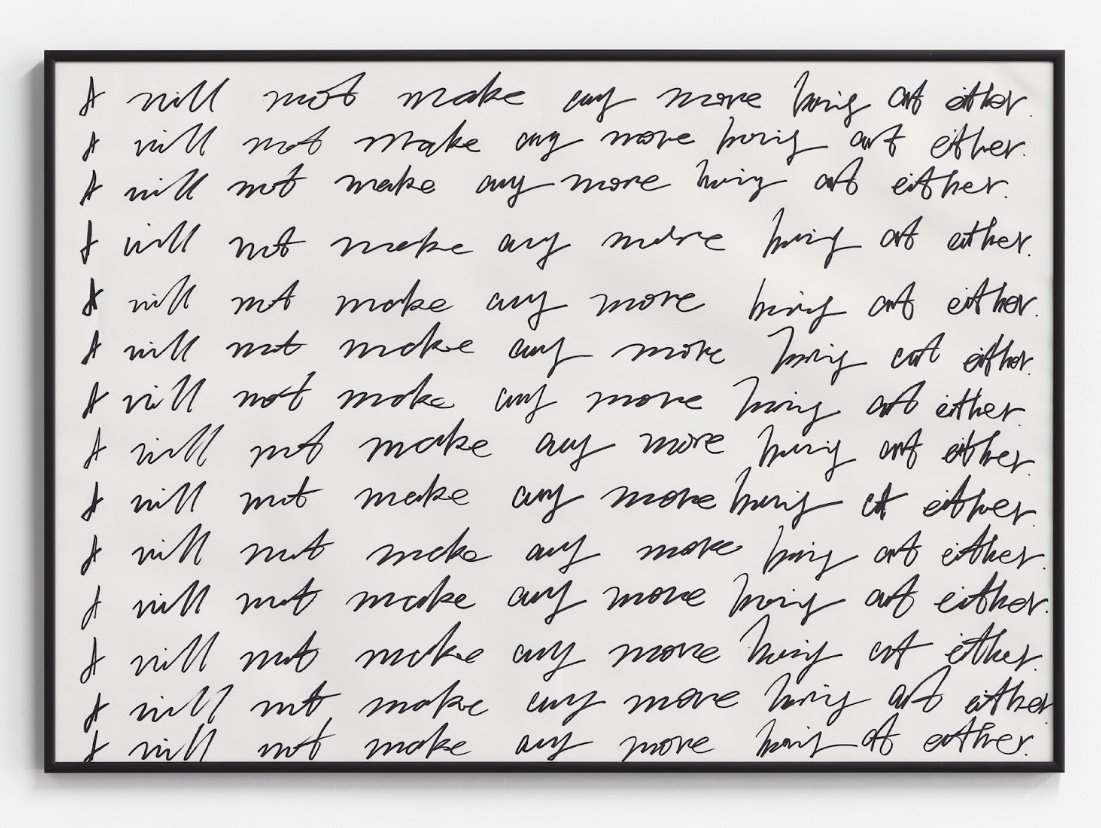 I will not make any more boring art either.
I will not make any more boring art either.
I will not make any more boring art either.
I will not make any more boring art either.
I will not make any more boring art either.
I will not make any more boring art either.
I will not make any more boring art either.
I will not make any more boring art either.
I will not make any more boring art either.
I will not make any more boring art either.
I will not make any more boring art either.
I will not make any more boring art either.
I will not make any more boring art either
I will not make any more boring art either.